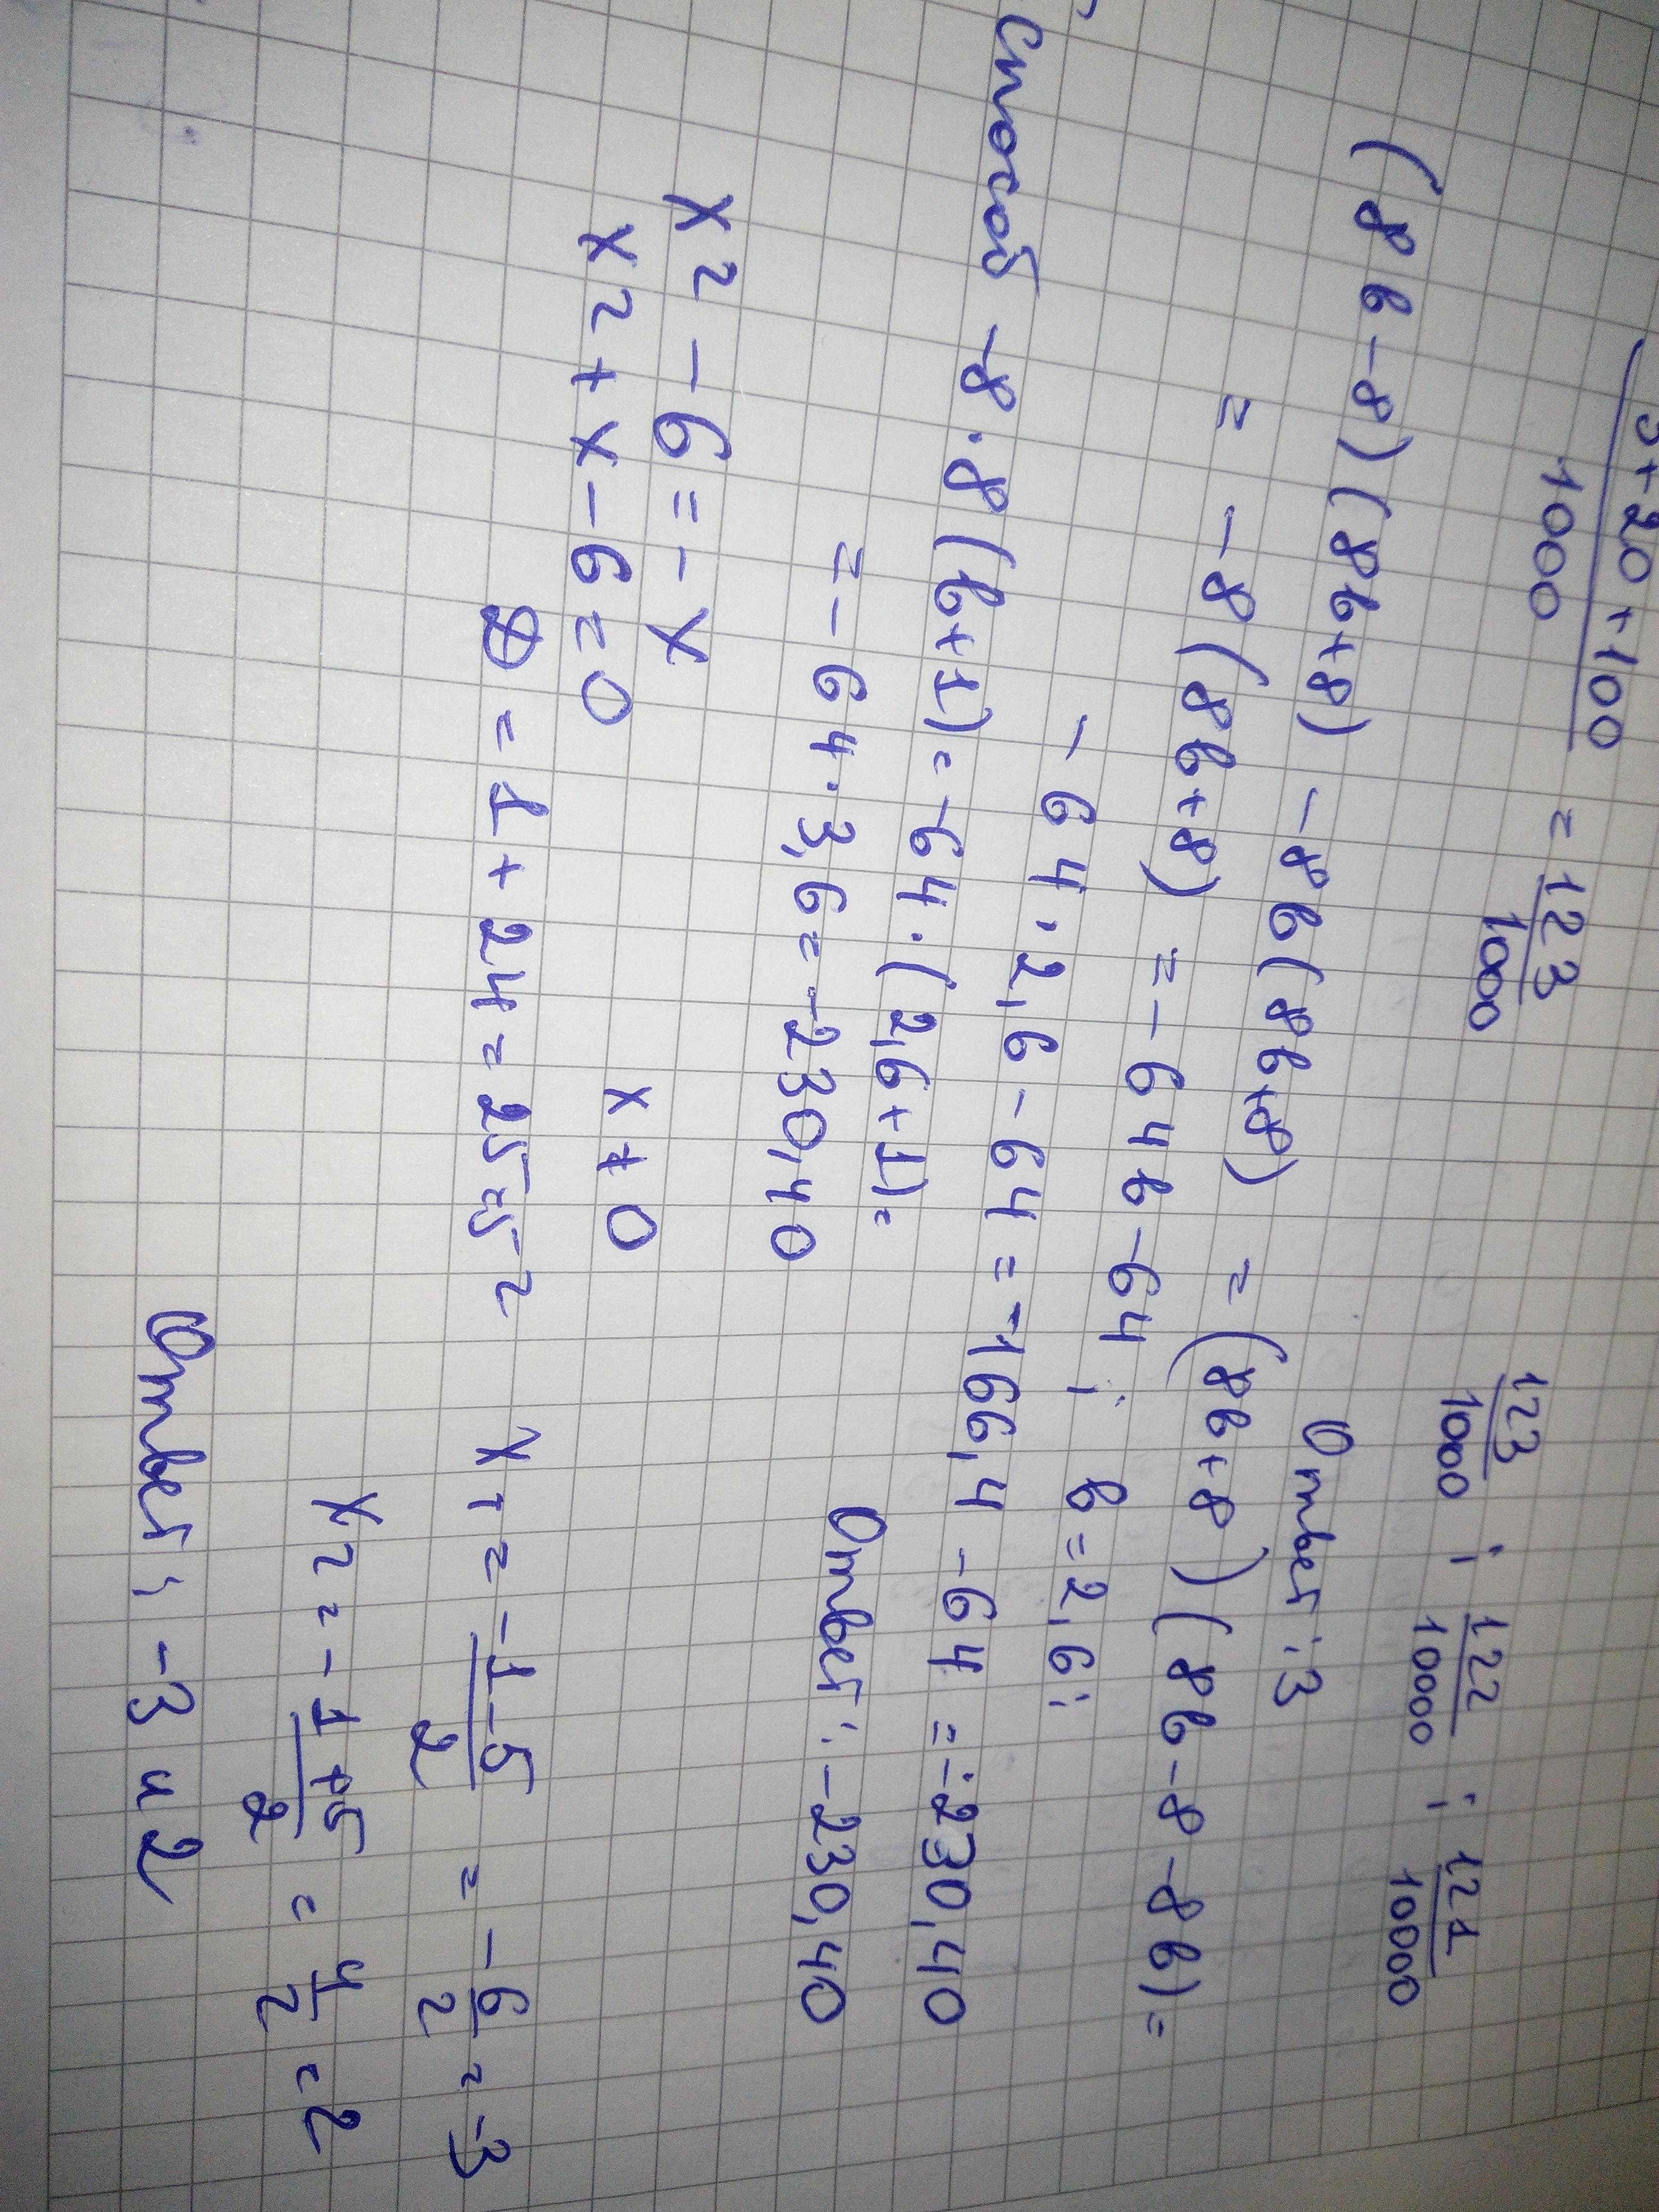 3+20+100/1000 = 123/1000   123/1000 ; 122/10000 ; 121/10000
Ответ: 3
(8в-8)(8в+8) -8в(8в+8) = (8в+8)(8в-8-8в)=
= -8(8в+8) = -64в-64 ; в=2,6;
-64·2,6-64 = -166,4-64 = -230,40
способ -8·8(в+1)= -64·(2,6+1)=
= -64·3,6= -230,40   Ответ: -230,40
x² - 6 = - x
x² + x - 6 = 0   x ≠ 0
D = 1 + 24 = 25 = 5²   x₁ = -1-5/2 = -6/2 = -3
x₂ = -1+5/2 = 4/2 = 2
Ответ; -3 и 2